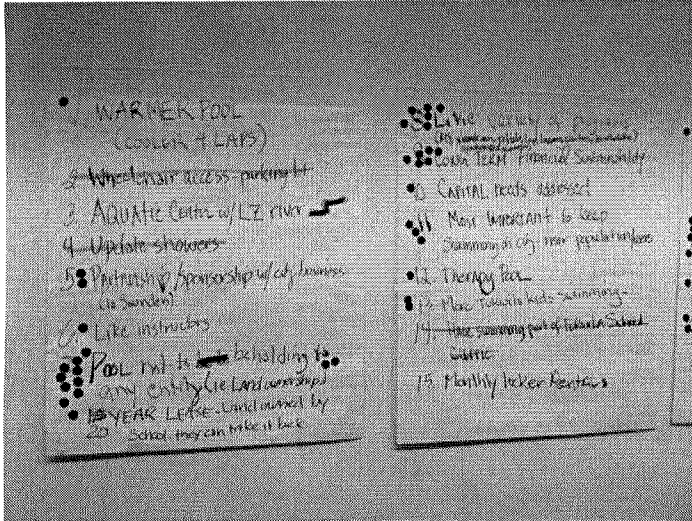 WARMER POOL
(COOLER 4 LAPS)
2. Wheelchair access-parking lot
3. AQUATIC Center w/LZ river
4. Update showers
5. Partnership/Sponsorship w/ city business
(ie Swindell)
6. Like instructors
7. POOL not to beholding to
any entity (ie Land ownership)
YEAR LEASE - Land owned by
20 School they can take it back
8. Like variety of
9. LONG TERM Financial Sustainability
10. CAPITAL needs addressed
11. Most IMPORTANT to keep
Swimming in city near population base
12. Therapy Pool
13. More Tukwila kids swimming
14. Have swimming part of Tukwila School
15. Monthly locker Rentals